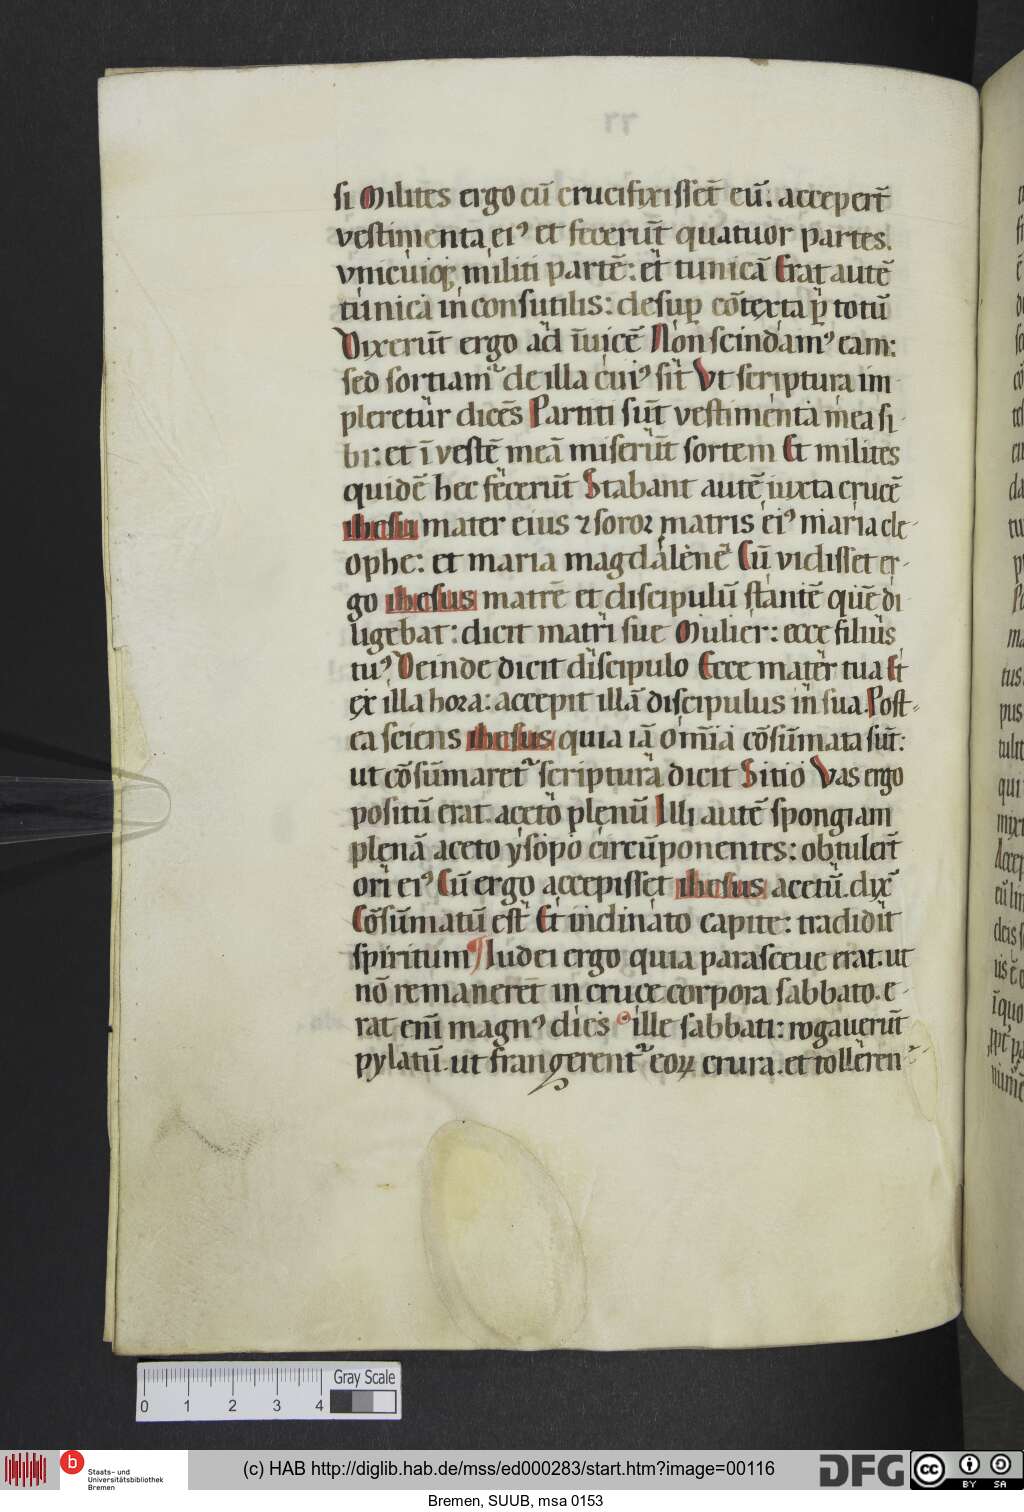 si Milites ergo cū crucifixisset̄ eū. acceper̄t
vestimenta ei⁹ et fecerūt quatuor partes.
vnicuiqꝫ militi partē: et tunicā Erat autē
tunica inconsutilis: desuꝑ cōtexta ꝑ totū
Dixerūt ergo ad īuicē Non scindam⁹ eam:
sed sortiamᷣ de illa cui⁹ sit Vt scriptura im
pleretur dicēs Partiti sūt vestimenta mea si-
bi: et ī vestē meā miserūt sortem Et milites
quidē hec fecerūt Stabant autē iuxta crucē
ihesu mater eius ⁊ soror matris ei⁹ maria cle-
ophe: et maria magdalene Cū vidisset er-
go ihesus matrē et discipulū stantē quē di
ligebat: dicit matri sue Mulier: ecce filius
tu⁹ Deinde dicit discipulo Ecce mater tua Et
ex illa hora: accepit illā discipulus in sua. Post-
ea sciens ihesus quia iā om̄ia cōsūmata sūt:
ut cōsūmaretᷣ scriptura dicit Sitio Vas ergo
positū erat aceto plenū Illi autē spongiam
plenā aceto ysopo circūponentes: obtuler̄t
ori ei⁹ Cū ergo accepisset ihesus acetū. dix̄
Cōsūmatū est Et inclinato capite: tradidit
spiritum ¶ Iudei ergo quia parasceue erat. ut
nō remanerēt in cruce corpora sabbato. e-
rat em̄ magn⁹ dies ille sabbati: rogauerūt
pylatū. ut frangerentᷣ eoꝝ crura. et tollerenᷣ-
0 1 2 3 4
Gray Scale
b
Staats- und
Universitätsbibliothek
Bremen
(c) HAB http://diglib.hab.de/mss/ed000283/start.htm?image=00116
DFG
cc BY SA
Bremen, SUUB, msa 0153